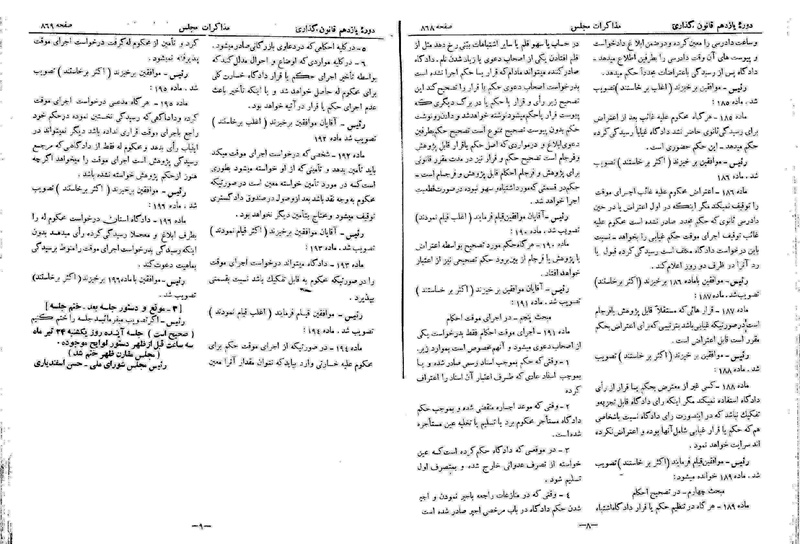 دورهٔ یازدهم قانون‌گذاری مذاکرات مجلس صفحه ۸۶۸
وساعت دادرسی را معین کرده و در ضمن ابلاغ دادخواست
و پیوست های آن وقت دادرسی را بطرفین اطلاع میدهد -
دادگاه پس از رسیدگی باعتراضات مجدداً حکم میدهد.
رئیس - موافقین برخیزند (اغلب برخاستند) تصویب
شد. ماده ۱۸۵:
ماده ۱۸۵ - هرگاه محکوم علیه غائب بعد از اعتراض
برای رسیدگی ثانوی حاضر نشد دادگاه کیلاً رسیدگی کرده
حکم میدهد - این حکم حضوری است.
رئیس - موافقین بر خیزند (اغلب برخاستند) تصویب
شد. ماده ۱۸۶:
ماده ۱۸۶ - اعتراض محکوم علیه غائب اجرای موقت
را توقیف نمیکند مگر اینکه در اول اعتراض یا در حین
دادرسی ثانوی که حکم مجدد صادر نشده است محکوم علیه
غائب توقیف اجرای موقت حکم غیابی را بخواهد - نسبت
باین درخواست دادگاه مکلف است رسیدگی کرده قبول یا
رد آنرا در ظرف دو روز اعلام کند.
رئیس - موافقین با ماده ۱۸۶ برخیزند (اکثر برخاستند)
تصویب شد. ماده ۱۸۷:
ماده ۱۸۷ - قرار هائی که مستقلاً قابل پژوهش یا فرجام
است در صورتیکه غیابی باشد بترتیبی که برای اعتراض بحکم
مقرر است قابل اعتراض است.
رئیس - موافقین برخیزند (اکثر برخاستند) تصویب
شد. ماده ۱۸۸:
ماده ۱۸۸ - کسی غیر از معترض بحکم یا قرار از رأی
دادگاه استفاده نمیکند مگر اینکه رأی دادگاه قابل تجزیه و
تفکیک نباشد که در اینصورت رأی دادگاه نسبت باشخاصی
هم که حکم یا قرار غیابی شامل آنها بوده و اعتراض نکرده
اند سرایت خواهد نمود.
رئیس - موافقین قیام فرمایند (اکثر برخاستند) تصویب
شد. ماده ۱۸۹ خوانده میشود:
مبحث چهارم - در تصحیح احکام
ماده ۱۸۹ - هر گاه در تنظیم حکم یا قرار دادگاه اشتباه
در حساب یا سهو قلم یا سایر اشتباهات بینی رخ دهد مثل از
قلم افتادن یکی از اصحاب دعوی یا زیاد شدن نام. دادگاه
صادر کننده میتواند مادام که قرار یا حکم اجرا نشده است
بدرخواست اصحاب دعوی حکم یا قرار را تصحیح کند این
تصحیح زیر رأی و قرار یا حکم یا در برگ دیگری که
پیوست قرار یا حکم میشود نوشته خواهد شد و دادن رونوشت
حکم بدون پیوست تصحیح ممنوع است تصحیح حکم بطرفین
دعوی ابلاغ و در مواردی که اصل حکم یا قرار قابل پژوهش
و فرجام است تصحیح حکم و قرار نیز در مدت مقرر قانونی
برای پژوهش و فرجام احکام قابل پژوهش و فرجام است -
حکم در قسمتی که مورد اشتباه و سهو نبوده در صورت قطعیت
اجراء میشود.
رئیس - آقایان موافقین قیام فرمایند (اغلب قیام نمودند)
تصویب شد. ماده ۱۹۰:
ماده ۱۹۰ - هرگاه حکم مورد تصحیح بواسطه اعتراض
یا پژوهش یا فرجام از بین برود حکم تصحیحی نیز از اعتبار
خواهد افتاد.
رئیس - آقایان موافقین برخیزند (اکثر برخاستند)
تصویب شد. ماده ۱۹۱:
مبحث پنجم - در اجرای موقت احکام
ماده ۱۹۱ - اجرای موقت احکام فقط بدرخواست یکی
از اصحاب دعوی میشود و آنهم مخصوص است بموارد زیر:
۱ - وقتی که حکم بموجب اسناد رسمی صادر شده و یا
بموجب اسناد عادی که طرف اعتبار آن اسناد را اعتراف
کرده است.
۲ - وقتی که موعد اجاره منقضی شده و بموجب حکم
دادگاه مستأجر محکوم برد یا تسلیم یا تخلیه عین مستأجره
شده است.
۳ - در موقعی که دادگاه حکم کرده است که عین
خواسته از تصرف عدوانی خارج شده و بمتصرف اول
تسلیم شود.
۴ - وقتی که در منازعات راجعه باجیر نمودن و اجیر
شدن حکم دادگاه در باب مرخصی اجیر صادر شده است
—۸—
دورهٔ یازدهم قانون‌گذاری مذاکرات مجلس صفحه ۸۶۹
۵ - در کلیه احکامی که در دعاوی بازرگانی صادر میشود.
۶ - در کلیه مواردی که اوضاع و احوال مدلل کند که
بواسطه تأخیر اجرای حکم یا قرار دادگاه خسارت کلی
برای محکوم له حاصل خواهد شد و یا اینکه تأخیر باعث
عدم اجرای حکم یا قرار در آتیه خواهد بود.
رئیس - آقایان موافقین برخیزند (اغلب برخاستند)
تصویب شد. ماده ۱۹۲
ماده ۱۹۲ - شخصی که درخواست اجرای موقت میکند
باید تأمین بدهد و تأمینی که از او خواسته میشود بطوری
است که در مورد تأمین خواسته معین است در صورتیکه
محکوم به وجه نقد باشد بعد از وصول در صندوق دادگستری
توقیف میشود و محتاج بتأمین دیگر نخواهد بود.
رئیس - آقایان موافقین برخیزند (اکثر قیام نمودند)
تصویب شد. ماده ۱۹۳:
ماده ۱۹۳ - دادگاه میتواند درخواست اجرای موقت
را در صورتیکه محکوم به قابل تفکیک باشد نسبت بقسمتی
بپذیرد.
رئیس - موافقین قیام فرمایند (اغلب قیام نمودند)
تصویب شد. ماده ۱۹۴:
ماده ۱۹۴ - در صورتیکه از اجرای موقت حکم برای
محکوم علیه خسارتی وارد بیاید که نتوان مقدار آنرا معین
کرد و تأمین از محکوم له گرفت درخواست اجرای موقت
پذیرفته نمیشود.
رئیس - موافقین برخیزند (اکثر برخاستند) تصویب
شد. ماده ۱۹۵:
ماده ۱۹۵ - هرگاه مدعی درخواست اجرای موقت
کرده و دادگاهی که رسیدگی نخستین نموده در حکم خود
راجع باجرای موقت قراری نداده باشد دیگر نمیتواند در
اینباب رأی بدهد و محکوم له فقط از دادگاهی که مرجع
رسیدگی پژوهش است اجرای موقت را میخواهد اگر چه
هنوز از حکم پژوهش خواسته نشده باشد.
رئیس - موافقین برخیزند (اکثر برخاستند) تصویب
شد. ماده ۱۹۶:
ماده ۱۹۶ - دادگاه استان درخواست محکوم له را
بطرف ابلاغ و معجلاً رسیدگی کرده رأی میدهد بدون
اینکه رسیدگی بدرخواست اجرای موقت را منوط برسیدگی
بماهیت دعوی کند.
رئیس - موافقین با ماده ۱۹۶ برخیزند (اکثر برخاستند)
تصویب شد.
[۳ - موقع و دستور جلسه بعد. ختم جلسه]
رئیس - اگر تصویب میفرمائید جلسه را ختم میکنیم
(صحیح است) جلسه آینده روز یکشنبه ۲۴ تیر ماه
سه ساعت قبل از ظهر دستور لوایح موجوده.
(مجلس مقارن ظهر ختم شد)
رئیس مجلس شورای ملی - حسن اسفندیاری
—۹—